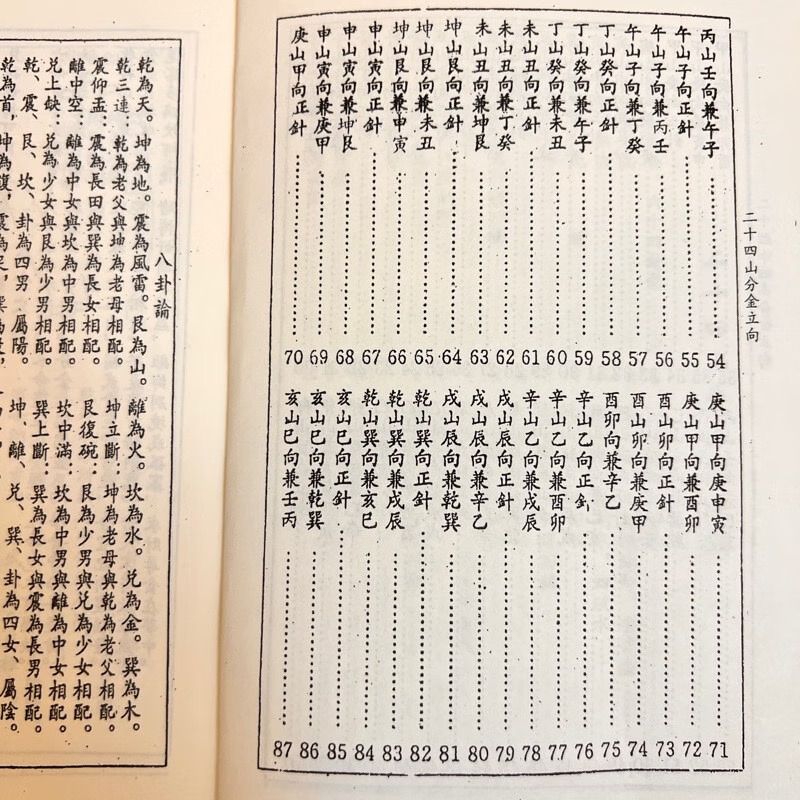 二十四山分金立向
丙山壬向兼午子 54
午山子向正針 55
午山子向兼丙壬 56
午山子向兼丁癸 57
丁山癸向正針 58
丁山癸向兼午子 59
丁山癸向兼未丑 60
未山丑向正針 61
未山丑向兼丁癸 62
未山丑向兼坤艮 63
坤山艮向正針 64
坤山艮向兼未丑 65
坤山艮向兼申寅 66
申山寅向正針 67
申山寅向兼坤艮 68
申山寅向兼庚甲 69
庚山甲向正針 70
庚山甲向庚申寅 71
庚山甲向兼酉卯 72
酉山卯向正針 73
酉山卯向兼庚甲 74
酉卯向兼辛乙 75
辛山乙向正針 76
辛山乙向兼酉卯 77
辛山乙向兼戌辰 78
戌山辰向正針 79
戌山辰向兼辛乙 80
戌山辰向兼乾巽 81
乾山巽向正針 82
乾山巽向兼戌辰 83
乾山巽向兼亥巳 84
亥山巳向正針 85
亥山巳向兼乾巽 86
亥山巳向兼壬丙 87
八卦論
乾為天。坤為地。震為風雷。艮為山。離為火。坎為水。兌為金。巽為木。
乾三連：乾為老父與坤為老母相配。坤立斷：坤為老母與乾為老父相配。
震仰盂：震為長田與巽為長女相配。艮復碗：艮為少男與兌為少女相配。
離中空：離為中女與坎為中男相配。坎中滿：坎為中男與離為中女相配。
兌上缺：兌為少女與艮為少男相配。巽上斷：巽為長女與震為長男相配。
乾、震、艮、坎、卦為四男，屬陽。坤、離、兌、巽、卦為四女、屬陰。
乾為首，坤為腹，震為足，